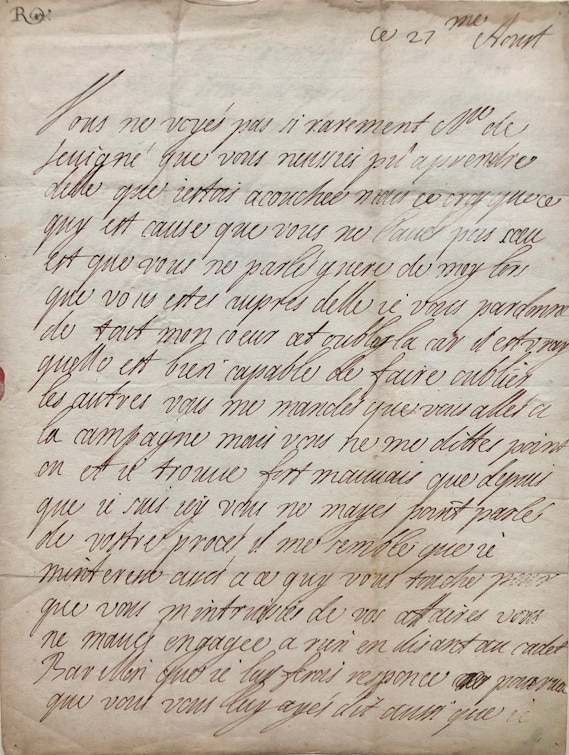 R
ce 27 me Aoust
Vous ne voyés pas si rarement Me de
sevigné que vous neussies pu aprendre
delle que iestois acouchee mais ie croy que ce
quy est cause que vous ne laues pas sceu
est que vous ne parlé guere de moy lors
que vous estes aupres delle ie vous pardonne
de tout mon coeur cet oubly la car il est vray
quelle est bien capable de faire oublier
les autres vous me mandés que vous alles a
la campagne mais vous ne me dittes point
ou et ie trouue fort mauuais que depuis
que ie suis icy vous ne mayes point parlé
de vostre proces il me semble que ie
minteresse a ce quy vous touche pour
que vous de vos affaires vous
ne maues engagee a rien en disant au cadet
que ie luy ferois responce pour
que vous vous luy ayés dit ainsi que ie